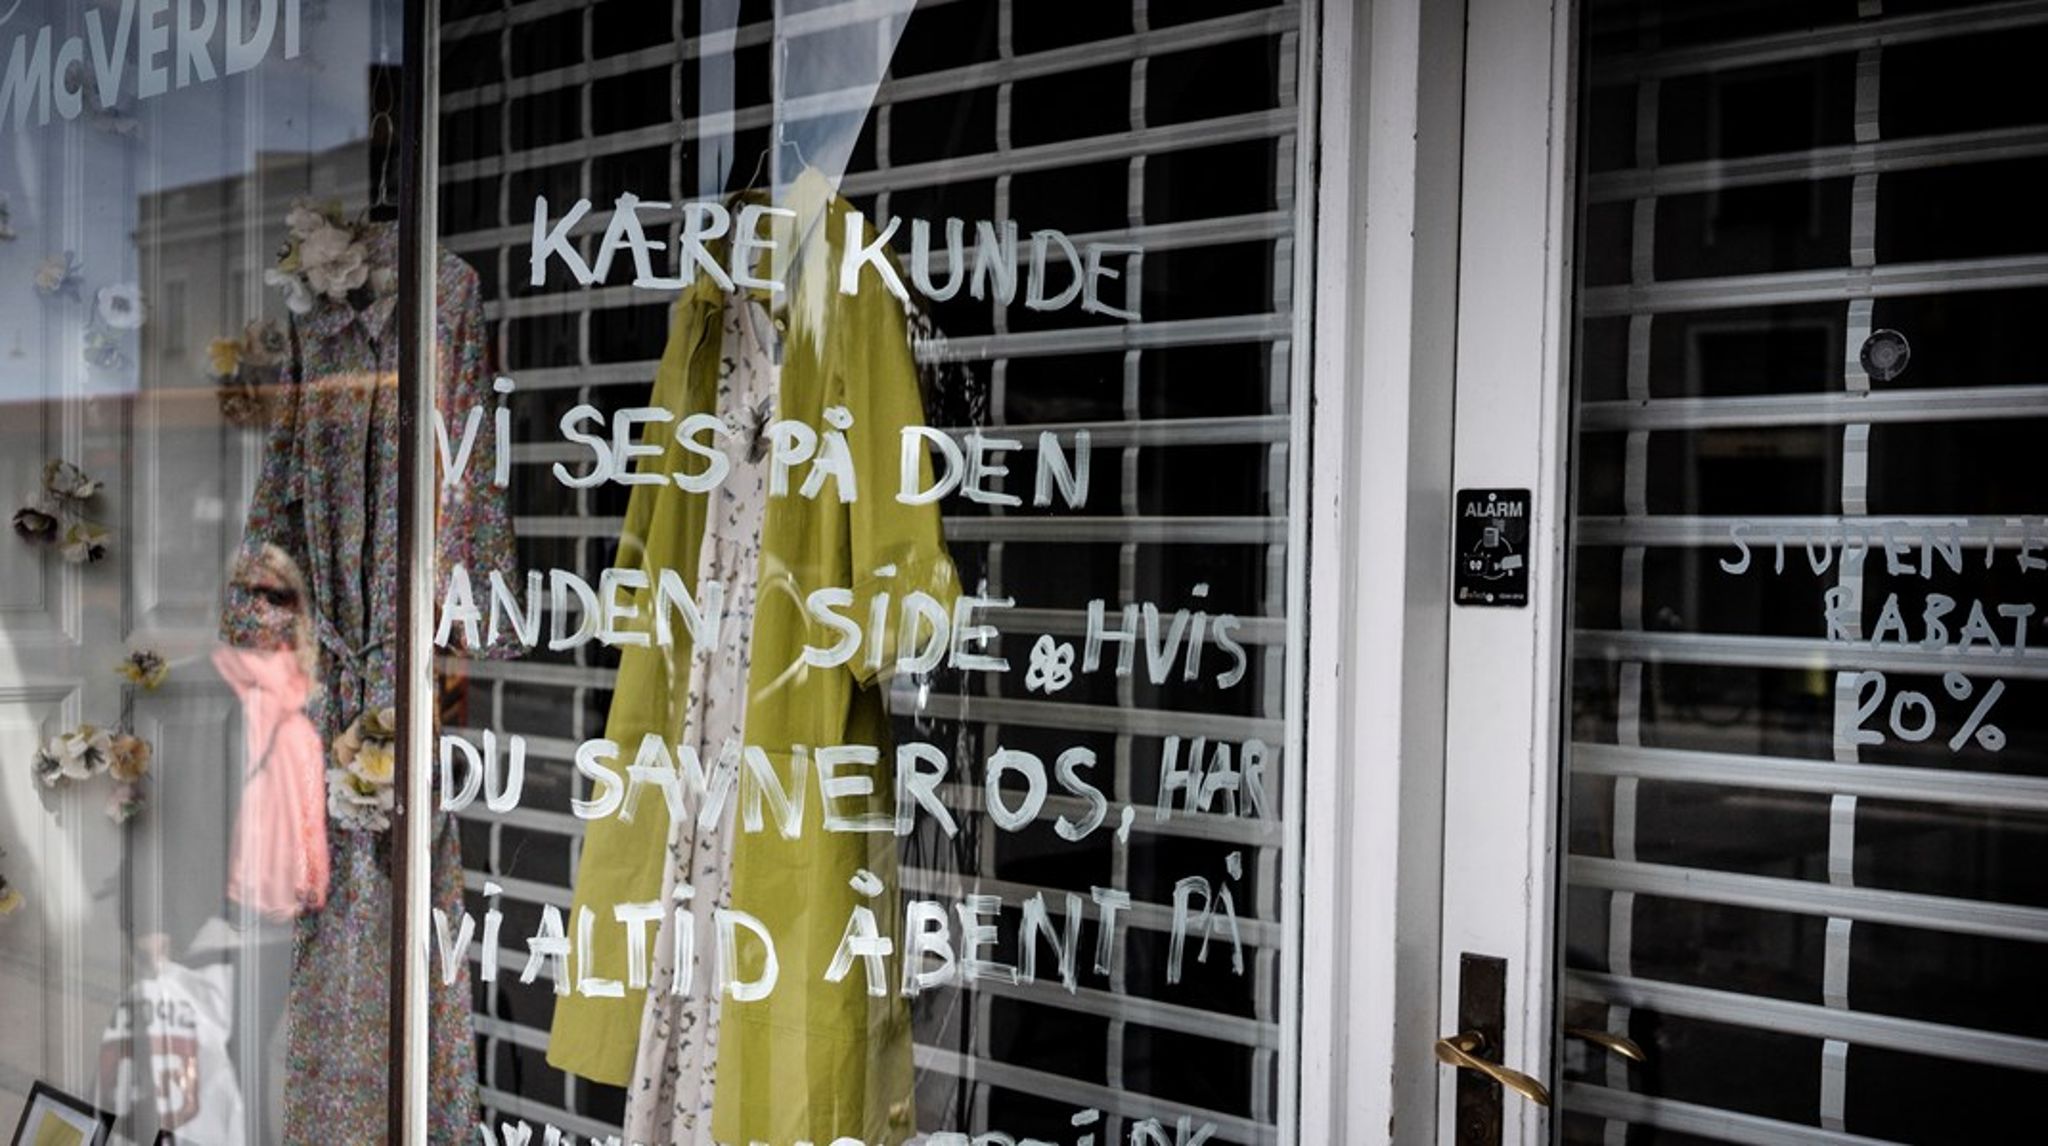 McVERDI
KÆRE KUNDE
Vi SES PÅ DEN
ANDEN SiDE HViS
DU SAVNER OS, HAR
Vi ALTiD ÅBENT PÅ
ALARM
STUDENTE
RABAT
20%